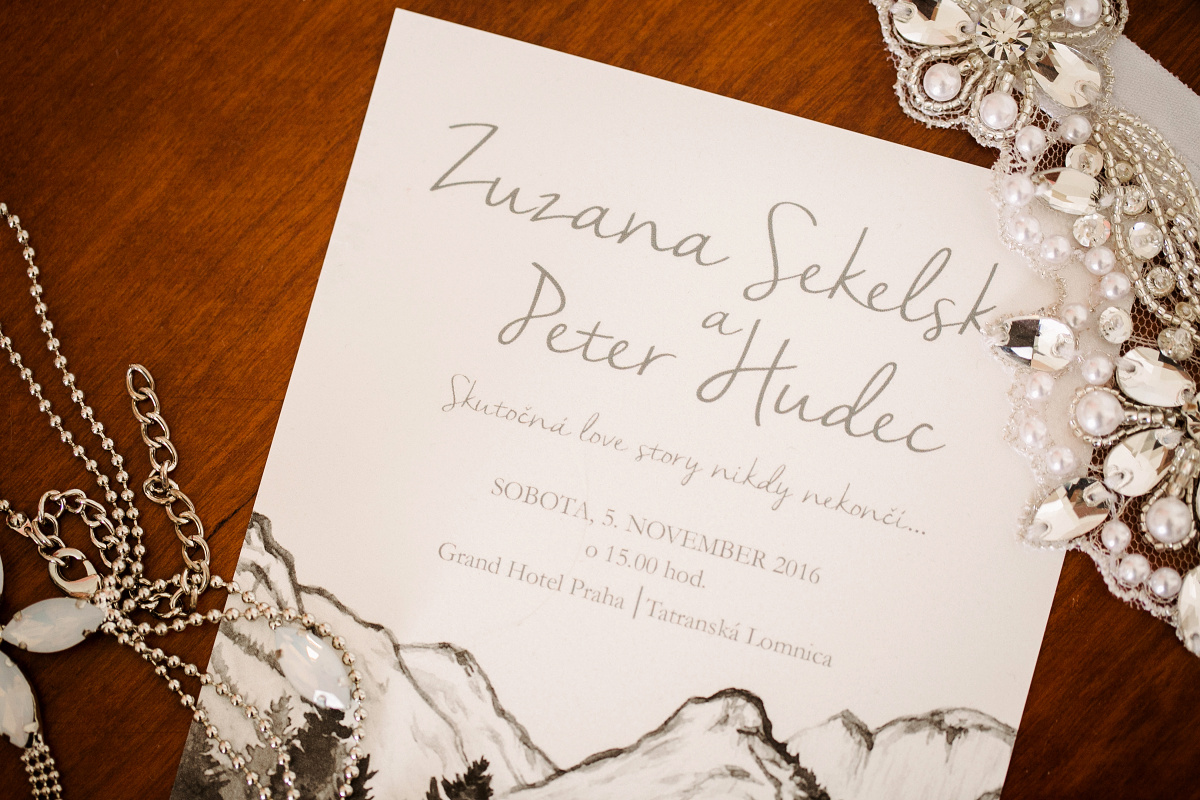 Zuzana Sekelsk
a
Peter Hudec
Skutočná love story nikdy nekončí...
SOBOTA, 5. NOVEMBER 2016
o 15.00 hod.
Grand Hotel Praha | Tatranská Lomnica